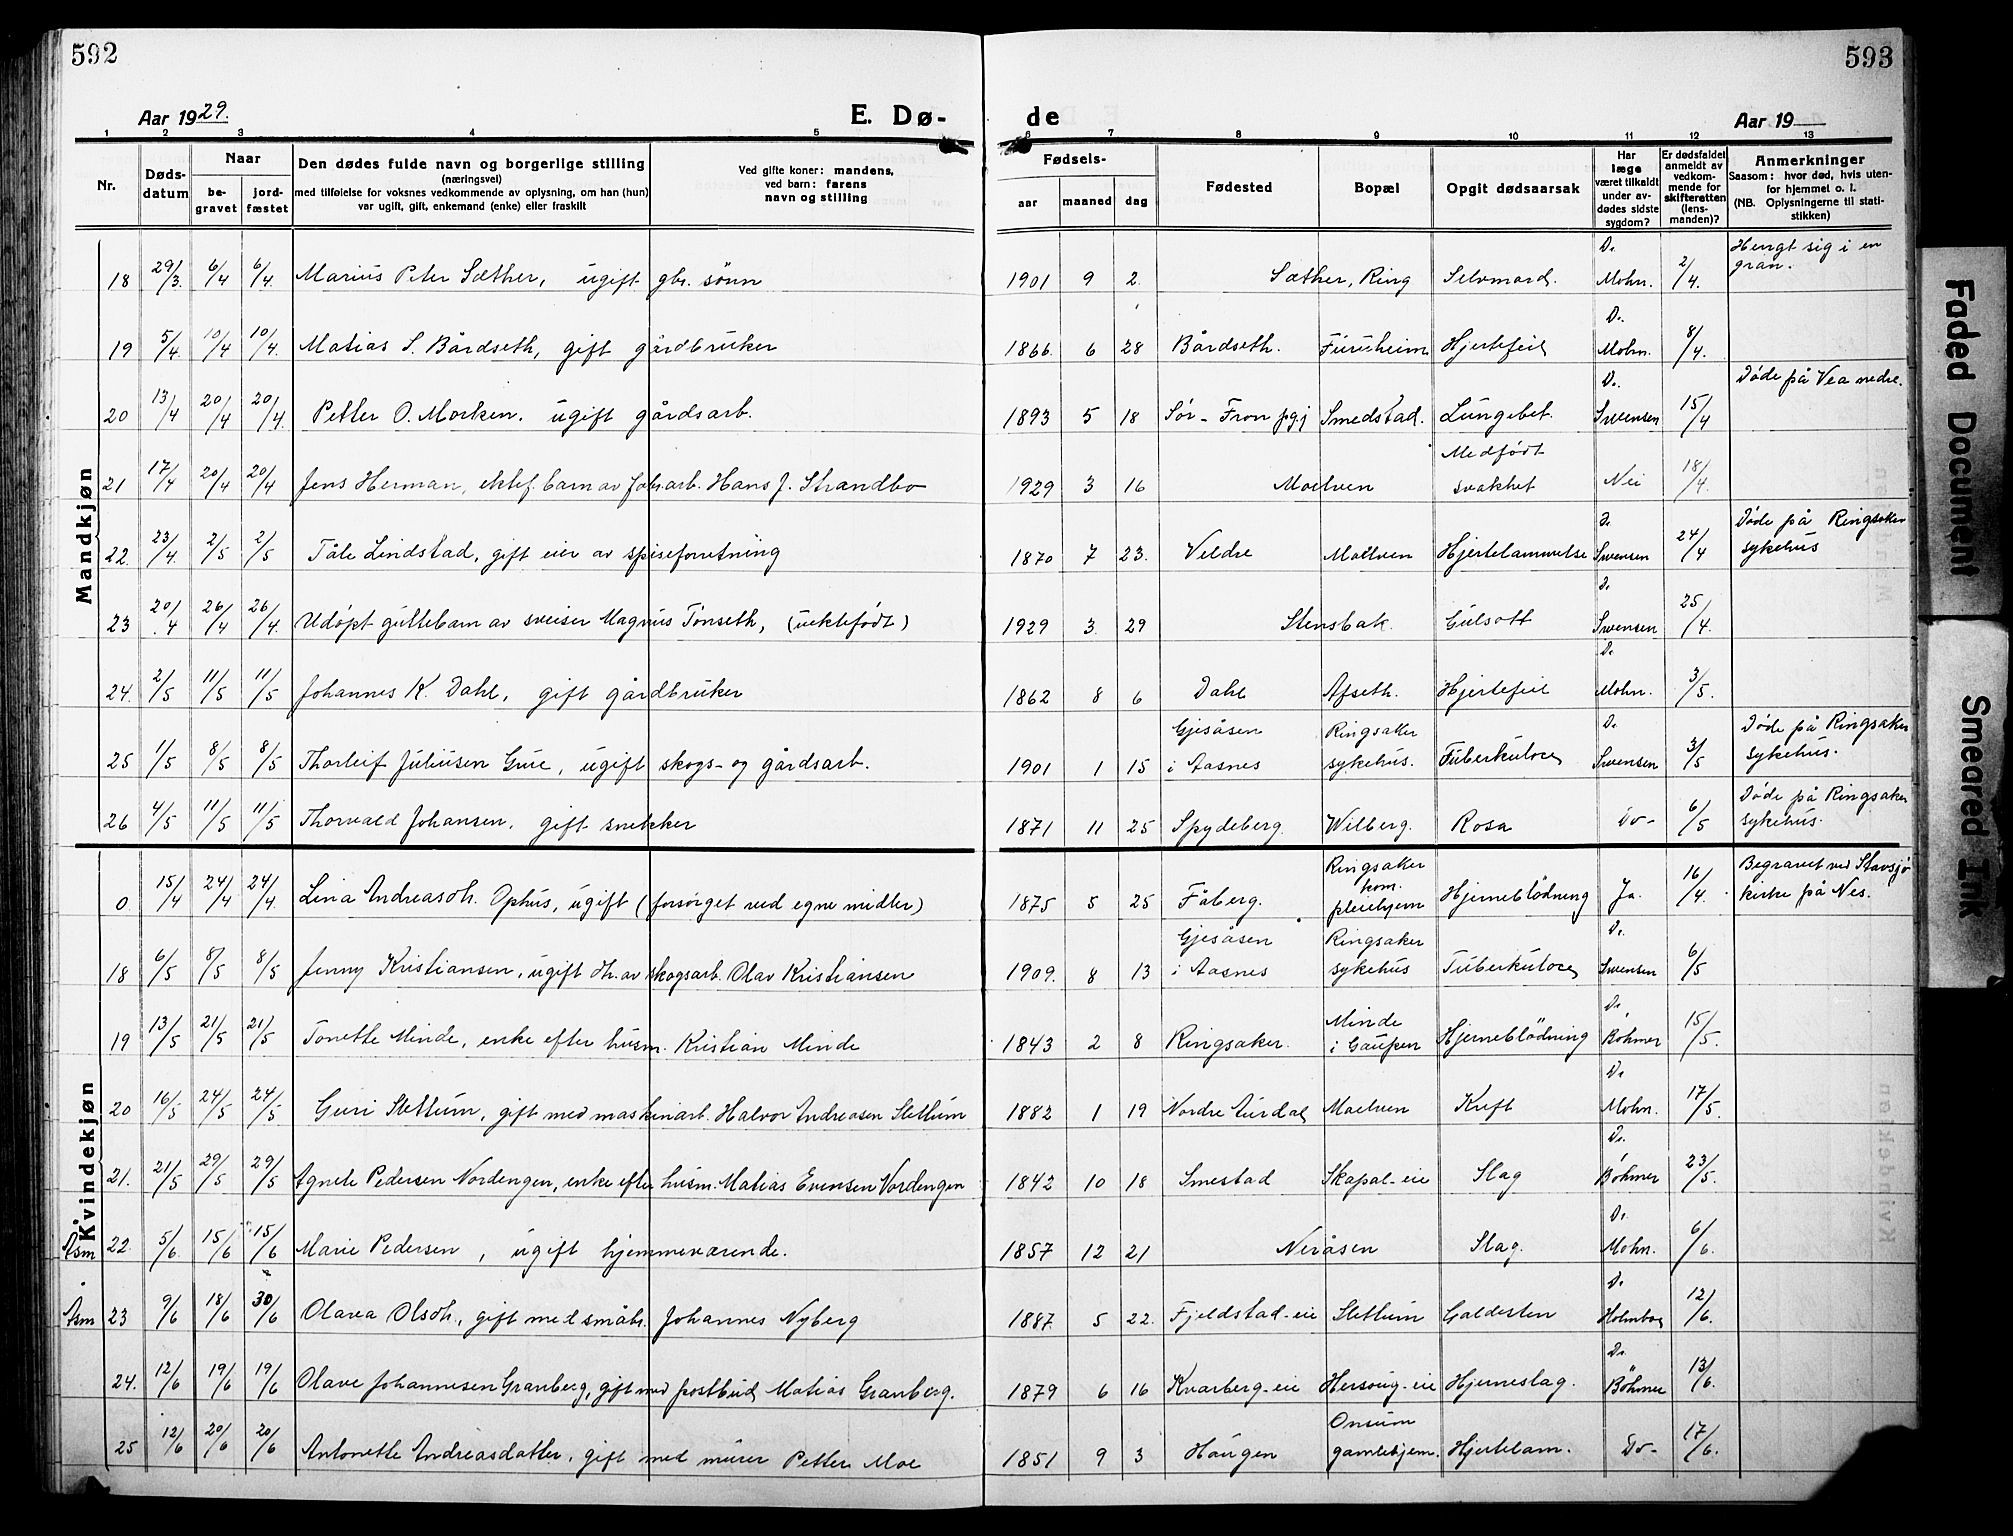 592
593
Aar 1929.
E. Dø-
de
Aar 19
1 2 3 4 5 6 7 8 9 10 11 12 13
Nr.
Døds-
datum
Naar
be-
gravet
jord-
fæstet
Den dødes fulde navn og borgerlige stilling
(næringsvei)
med tilføielse for voksnes vedkommende av oplysning, om han (hun)
var ugift, gift, enkemand (enke) eller fraskilt
Ved gifte koner: mandens,
ved barn: farens
navn og stilling
Fødsels-
aar maaned dag
Fødested
Bopæl
Opgit dødsaarsak
Har
læge
været tilkaldt
under av-
dødes sidste
sygdom?
Er dødsfaldet
anmeldt av
vedkom-
mende for
skifteretten
(lens-
manden)?
Anmerkninger
Saasom: hvor død, hvis uten-
for hjemmet o. l.
(NB. Oplysningerne til stati-
stikken)
Mandkjøn
18 29/3 6/4 6/4 Marius Peter Sæther, ugift gbr. sønn 1901 9 2 Sæther, Ring Selvmord. Dr. Mohn. 2/4. Hengt sig i en gran.
19 5/4 10/4 10/4 Matias S. Bårdseth, gift gårdbruker 1866. 6 28 Bårdseth. Furuheim Hjertefeil Dr. Mohn. 8/4.
20 13/4 20/4 20/4 Petter O. Morken. ugift gårdsarb. 1893 5 18 Sør-Fron pgj Smedstad. Lungebet. Dr. Swensen 15/4 Døde på Vea nedre.
21 17/4 20/4 20/4 Jens Herman, ektef. barn av fabr.arb. Hans J. Strandbo 1929 3 16 Moelven Medfødt svakhet Nei 18/4.
22. 23/4. 2/5 2/5 Tåle Lindstad, gift eier av spiseforretning 1870 7 23. Veldre Moelven Hjertelammelse Dr. Swensen 24/4 Døde på Ringsaker sykehus
23 20/4 26/4 26/4. Udøpt guttebarn av sveiser Magnus Tønseth, (uektefødt) 1929 3. 29 Stensbak. Gulsott Dr. Swensen 25/4.
24. 2/5 11/5 11/5 Johannes K. Dahl, gift gårdbruker 1862 8 6 Dahl Afseth. Hjertefeil Dr. Mohn. 3/5.
25 1/5 8/5 8/5 Thorleif Juliusen Gure, ugift skogs- og gårdsarb. 1901 1 15 Gjesåsen i Aasnes Ringsaker sykehus. Tuberkulose Dr. Swensen 3/5 Døde på Ringsaker sykehus.
26 4/5 11/5 11/5 Thorvald Johansen. gift snekker 1871 11 25 Spydeberg. Wilberg. Rosa Do- 6/5 Døde på Ringsaker sykehus.
Kvindekjøn
0. 15/4 24/4 24/4. Lina Andreasdt. Ophus, ugift (forsørget ved egne midler) 1875 5 25 Fåberg. Ringsaker kom. pleiehjem Hjerneblødning Ja. 16/4. Begravet ved Stavsjø kirke på Nes.
18 6/5 8/5 8/5 Jenny Kristiansen, ugift dt. av skogsarb. Olav Kristiansen 1909. 8 13 Gjesåsen i Aasnes Ringsaker sykehus Tuberkulose Dr. Swensen 6/5
19 13/5 21/5 21/5 Tonette Minde, enke efter husm. Kristian Minde 1843 2 8 Ringsaker. Minde i Gaupen Hjerneblödning Dr. Böhmer 15/5.
20 16/5 24/5 24/5 Guri Slettum, gift med maskinarb. Halvor Andreasen Slettum 1882 1 19 Nordre Aurdal Moelven Kreft Dr. Mohn. 17/5.
21. 21/5 29/5 29/5 Agnete Pedersen Nordengen, enke efter husm. Matias Evensen Nordengen 1842 10 18 Smestad Skapal-eie Slag Dr. Böhmer 23/5.
Åsm 22. 5/6. 15/6 15/6 Marie Pedersen, ugift hjemmeværende. 1857 12 21 Neråsen Slag. Dr. Mohn. 6/6.
Åsm 23 9/6 18/6 30/6 Olava Olsdt., gift med småbr. Johannes Nyberg 1887. 5 22. Fjeldstad-eie Slettum Galdesten Dr. Holmboe 12/6.
24. 12/6 19/6 19/6 Olave Johannesen Granberg, gift med postbud Matias Granberg. 1879 6 16 Kvarberg-eie Hersoug-eie Hjerneslag. Dr. Böhmer 13/6.
25 12/6 20/6 20/6 Antonette Andreasdatter, gift med murer Petter Moe 1851 9 3 Haugen Onsum gamlehjem. Hjertelam. Do- 17/6.
Faded Document
Smeared Ink